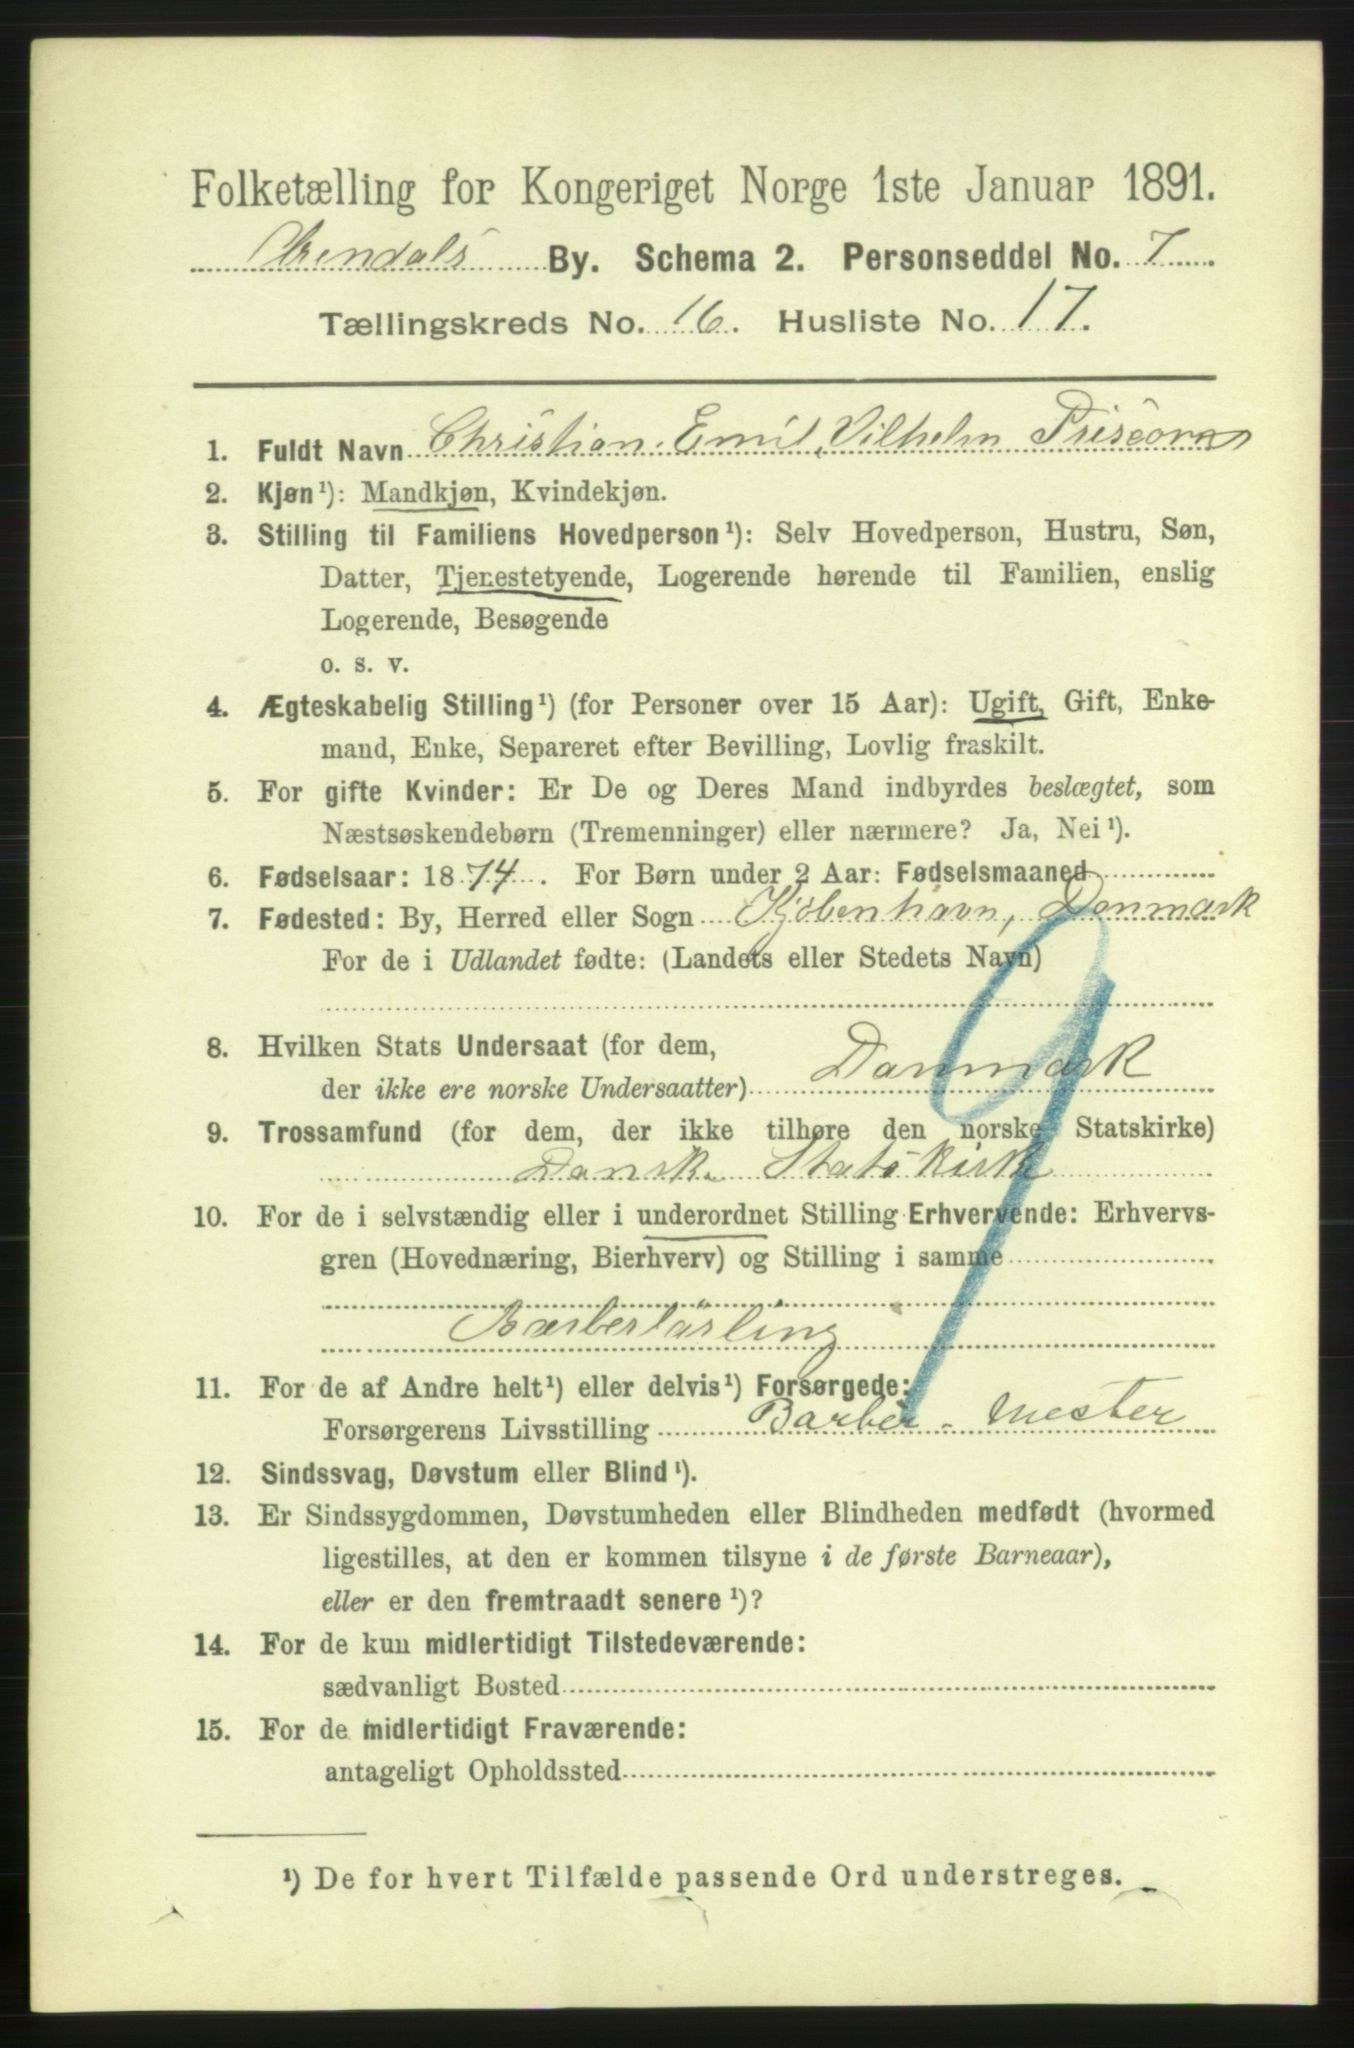 Folketælling for Kongeriget Norge 1ste Januar 1891.
Arendals By. Schema 2. Personseddel No. 7
Tællingskreds No. 16. Husliste No. 17.
1. Fuldt Navn Christian Emil Vilhelm
2. Kjøn¹): Mandkjøn, Kvindekjøn.
3. Stilling til Familiens Hovedperson¹): Selv Hovedperson, Hustru, Søn,
Datter, Tjenestetyende, Logerende hørende til Familien, enslig
Logerende, Besøgende
o. s. v.
4. Ægteskabelig Stilling¹) (for Personer over 15 Aar): Ugift, Gift, Enke-
mand, Enke, Separeret efter Bevilling, Lovlig fraskilt.
5. For gifte Kvinder: Er De og Deres Mand indbyrdes beslægtet, som
Næstsøskendebørn (Tremenninger) eller nærmere? Ja, Nei¹).
6. Fødselsaar: 1874. For Børn under 2 Aar: Fødselsmaaned
7. Fødested: By, Herred eller Sogn Kjöbenhavn, Danmark
For de i Udlandet fødte: (Landets eller Stedets Navn)
8. Hvilken Stats Undersaat (for dem,
der ikke ere norske Undersaatter) Danmark
9. Trossamfund (for dem, der ikke tilhøre den norske Statskirke)
Danske Statskirke
10. For de i selvstændig eller i underordnet Stilling Erhvervende: Erhvervs-
gren (Hovednæring, Bierhverv) og Stilling i samme
Barberlärling
11. For de af Andre helt¹) eller delvis¹) Forsørgede:
Forsørgerens Livsstilling Barber-mester
12. Sindssvag, Døvstum eller Blind¹).
13. Er Sindssygdommen, Døvstumheden eller Blindheden medfødt (hvormed
ligestilles, at den er kommen tilsyne i de første Barneaar),
eller er den fremtraadt senere¹)?
14. For de kun midlertidigt Tilstedeværende:
sædvanligt Bosted
15. For de midlertidigt Fraværende:
antageligt Opholdssted
¹) De for hvert Tilfælde passende Ord understreges.
9